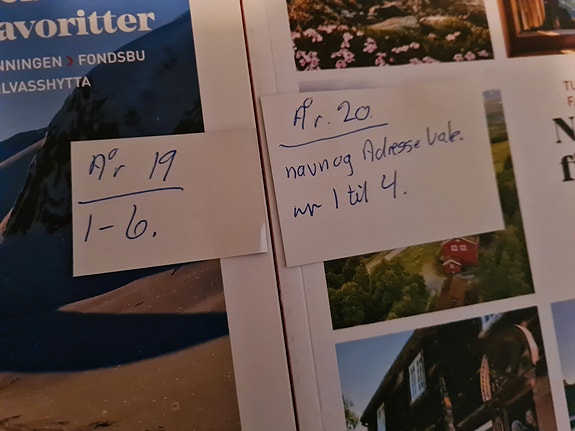 avoritter
NNINGEN > FONDSBU
LVASSHYTTA
År 19
1-6.
År. 20.
navn og Adresse
nr 1 til 4.
TU
F
N
f